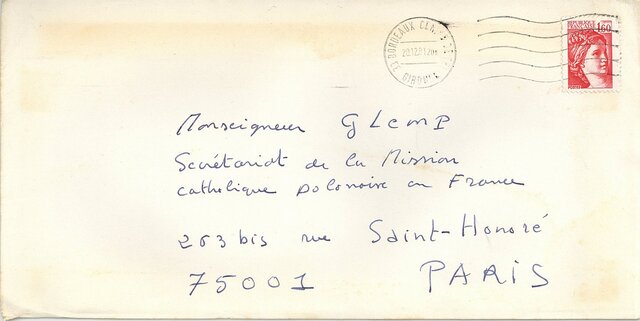 33 BORDEAUX
GIRONDE
1,60
Monseigneur GLEMP
Secrétariat de la Mission
catholique polonaise en France
263 bis rue Saint-Honoré
75001 PARIS